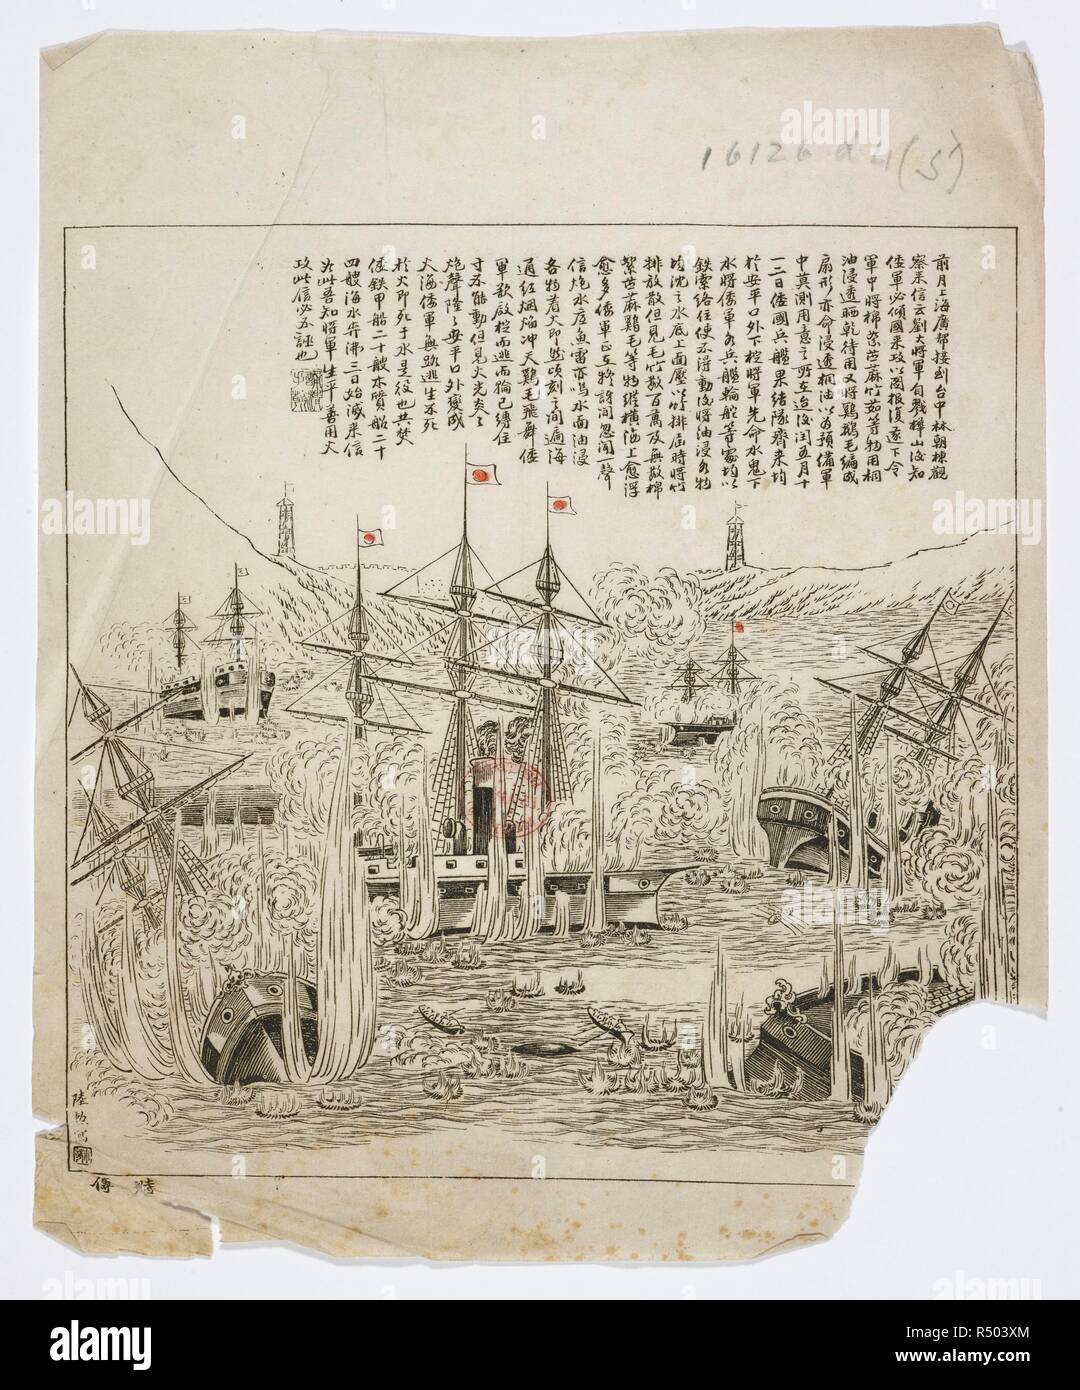 16126 d 4 (5)
前月上海廣帮接到台中林朝棟觀
察來信云劉大將軍自戰樺山後知
倭軍必傾國來攻以圖報復遂下令
軍中將棉絮苎蔴竹茹等物用桐
油浸透晒乾待用又將鷄鵝毛編成
扇形亦命浸透桐油以为預備軍
中莫測用意之所在迨後閏五月十
一二日倭國兵艦果結隊齊来均
於安平口外下椗將軍先命水鬼下
水將倭軍各兵艦輪舵等處均以
鉄索絡住使不得動後將油浸各物
均沈之水底上面壓以竹排届時將竹
排放散但見毛竹数百萬及無数棉
絮苎蔴鷄毛等物縱横海上愈浮
愈多倭軍正在猜訝间忽闻一聲
信炮水底魚雷亦鸣水面油浸
各物着火即燃頃刻之间遍海
通红烟焰冲天鷄毛飛舞倭
軍欲啟椗而逃而輪已縛住
寸不能動但見火光炎々
炮聲隆々安平口外變成
火海倭軍無路逃生不死
於火即死于水是役也共焚
倭鉄甲船二十艘木質船二十
四艘海水奔沸三日始滅来信
如此吾知將軍生平善用火
攻此信必不誣也
陸
寫
傳
a
alamy
alamy
Image ID: R503XM
www.alamy.com